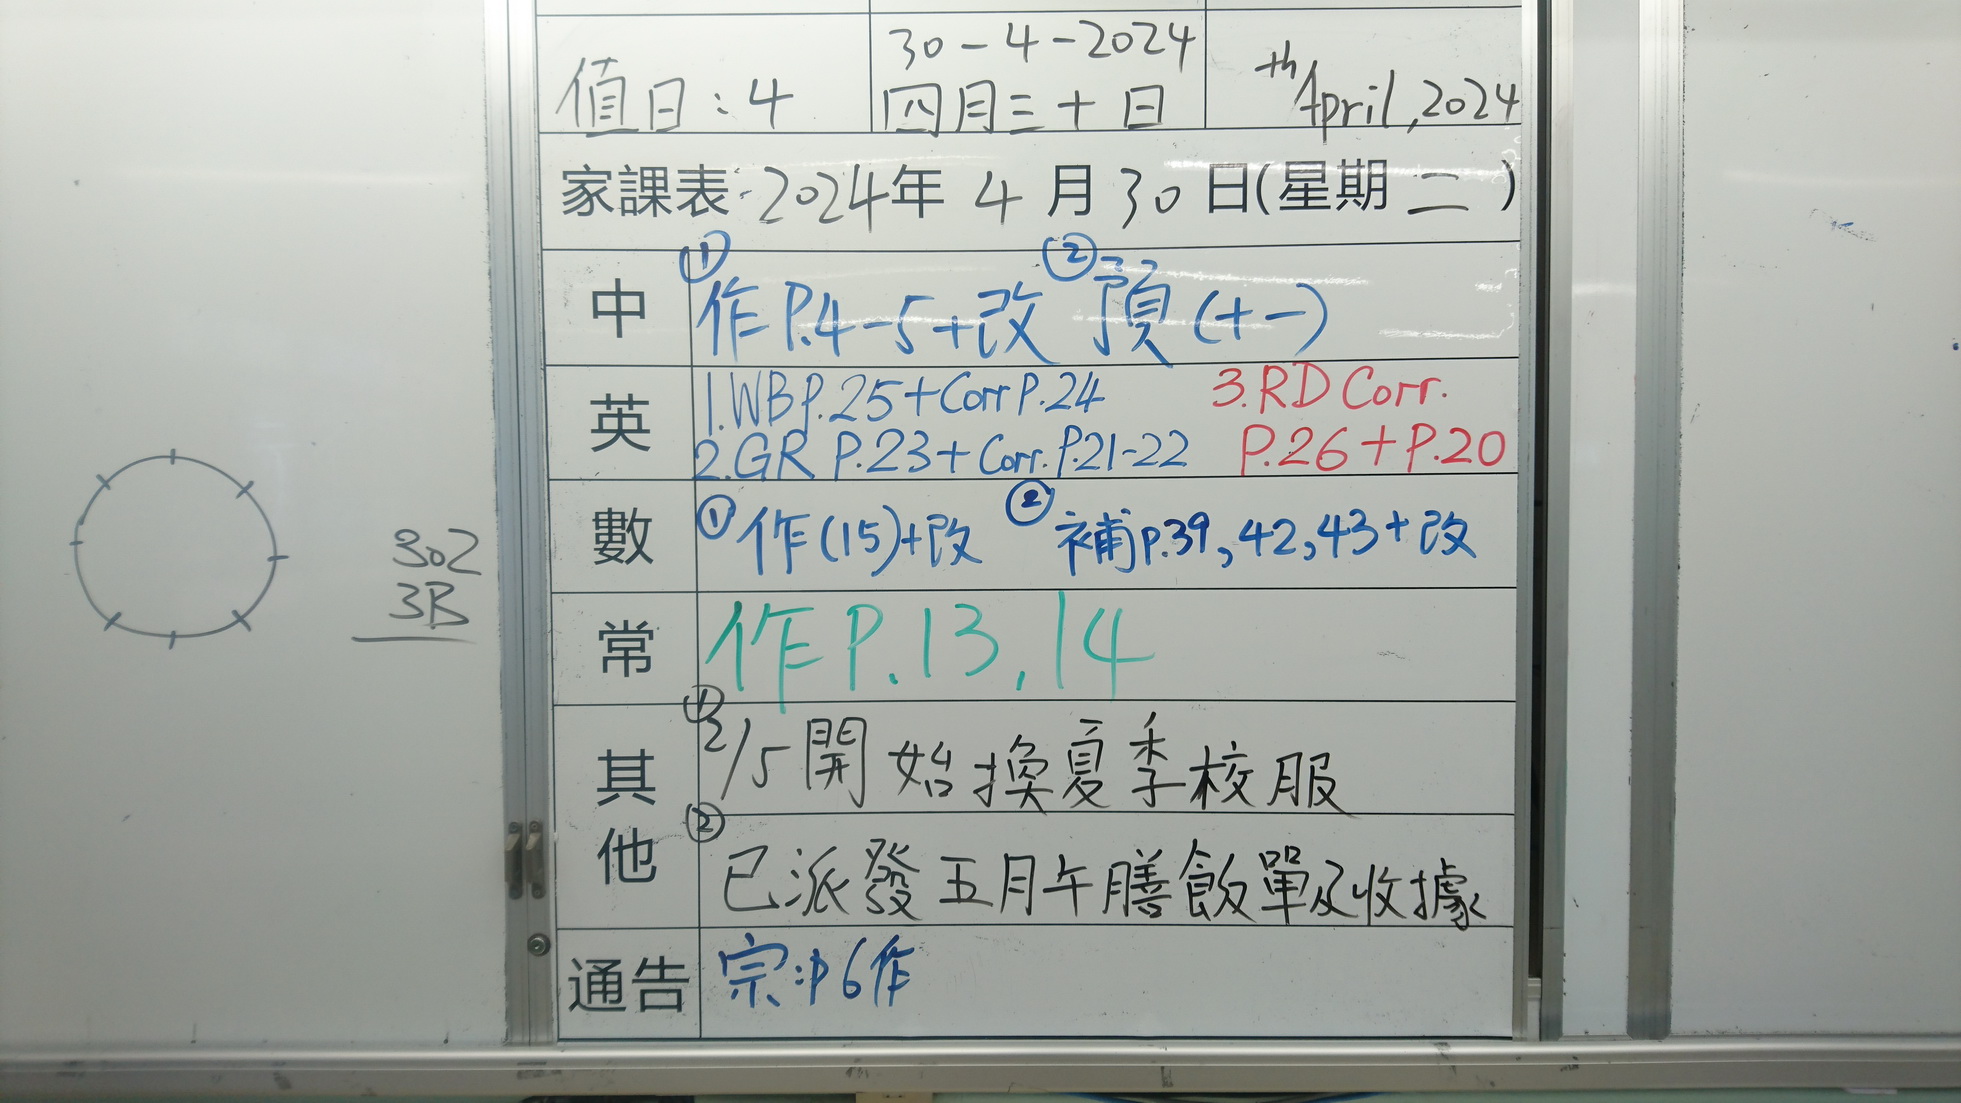 30-4-2024
值日:4
四月三十日
th April, 2024
家課表:2024年 4 月 30 日(星期 二 )
中
① 作 P.4-5+改 ② 預(十一)
英
1.WB p.25+Corr P.24
2.GR P.23+ Corr. P.21-22
3.RD Corr.
P.26+P.20
數
① 作(15)+改 ② 補p.39,42,43+改
常
作 P.13,14
302
3B
其他
① 2/5開始換夏季校服
② 已派發五月午膳飯單及收據
通告
宗:P6作